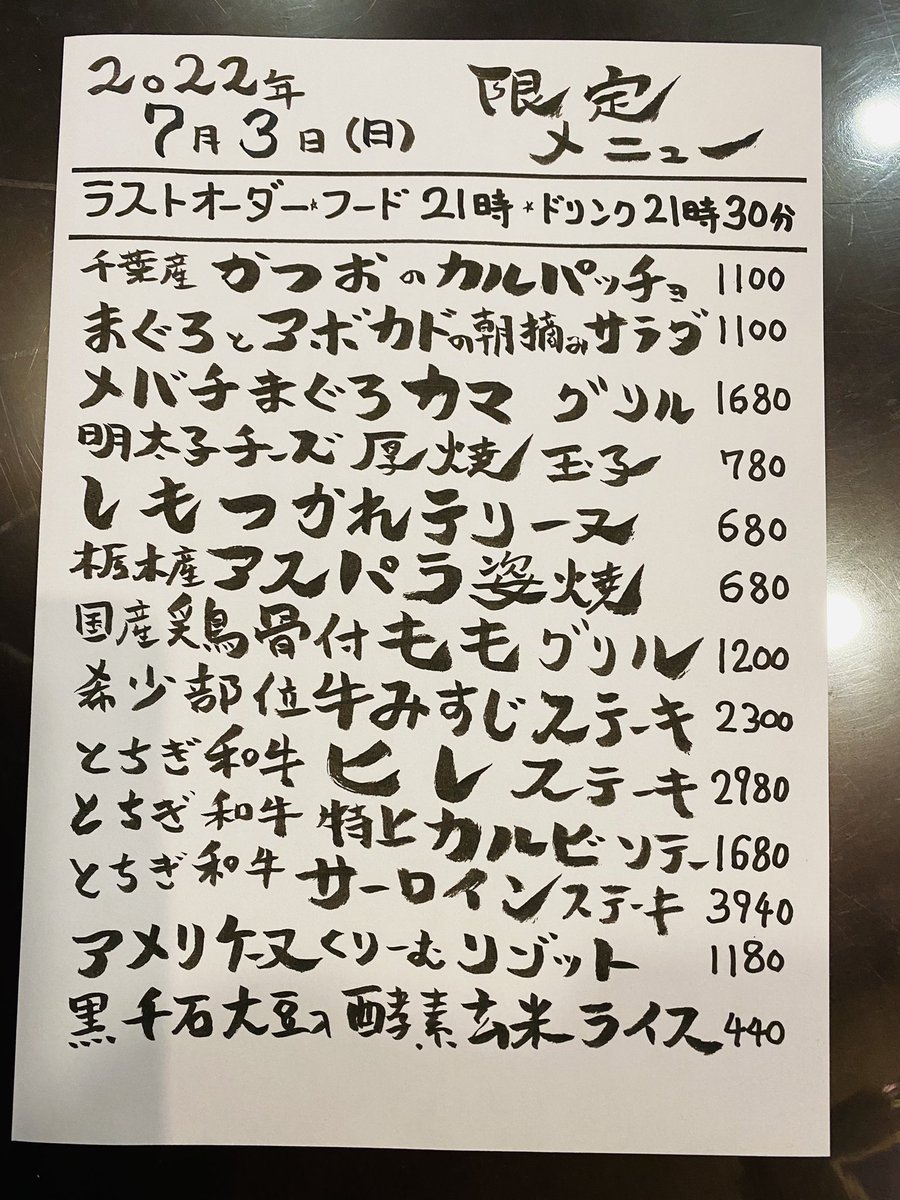 2022年
7月3日(日)
限定
メニュー
ラストオーダー*フード 21時 *ドリンク21時30分
千葉産 かつおのカルパッチョ 1100
まぐろとアボカドの朝摘みサラダ 1100
メバチまぐろカマ グリル 1680
明太子チーズ厚焼玉子 780
しもつかれテリーヌ 680
栃木産アスパラ姿焼 680
国産鶏骨付ももグリル 1200
希少部位牛みすじステーキ 2300
とちぎ和牛ヒレステーキ 2980
とちぎ和牛 特上カルビソテー 1680
とちぎ和牛サーロインステーキ 3940
アメリケーヌくりーむリゾット 1180
黒千石大豆入酵素玄米ライス 440